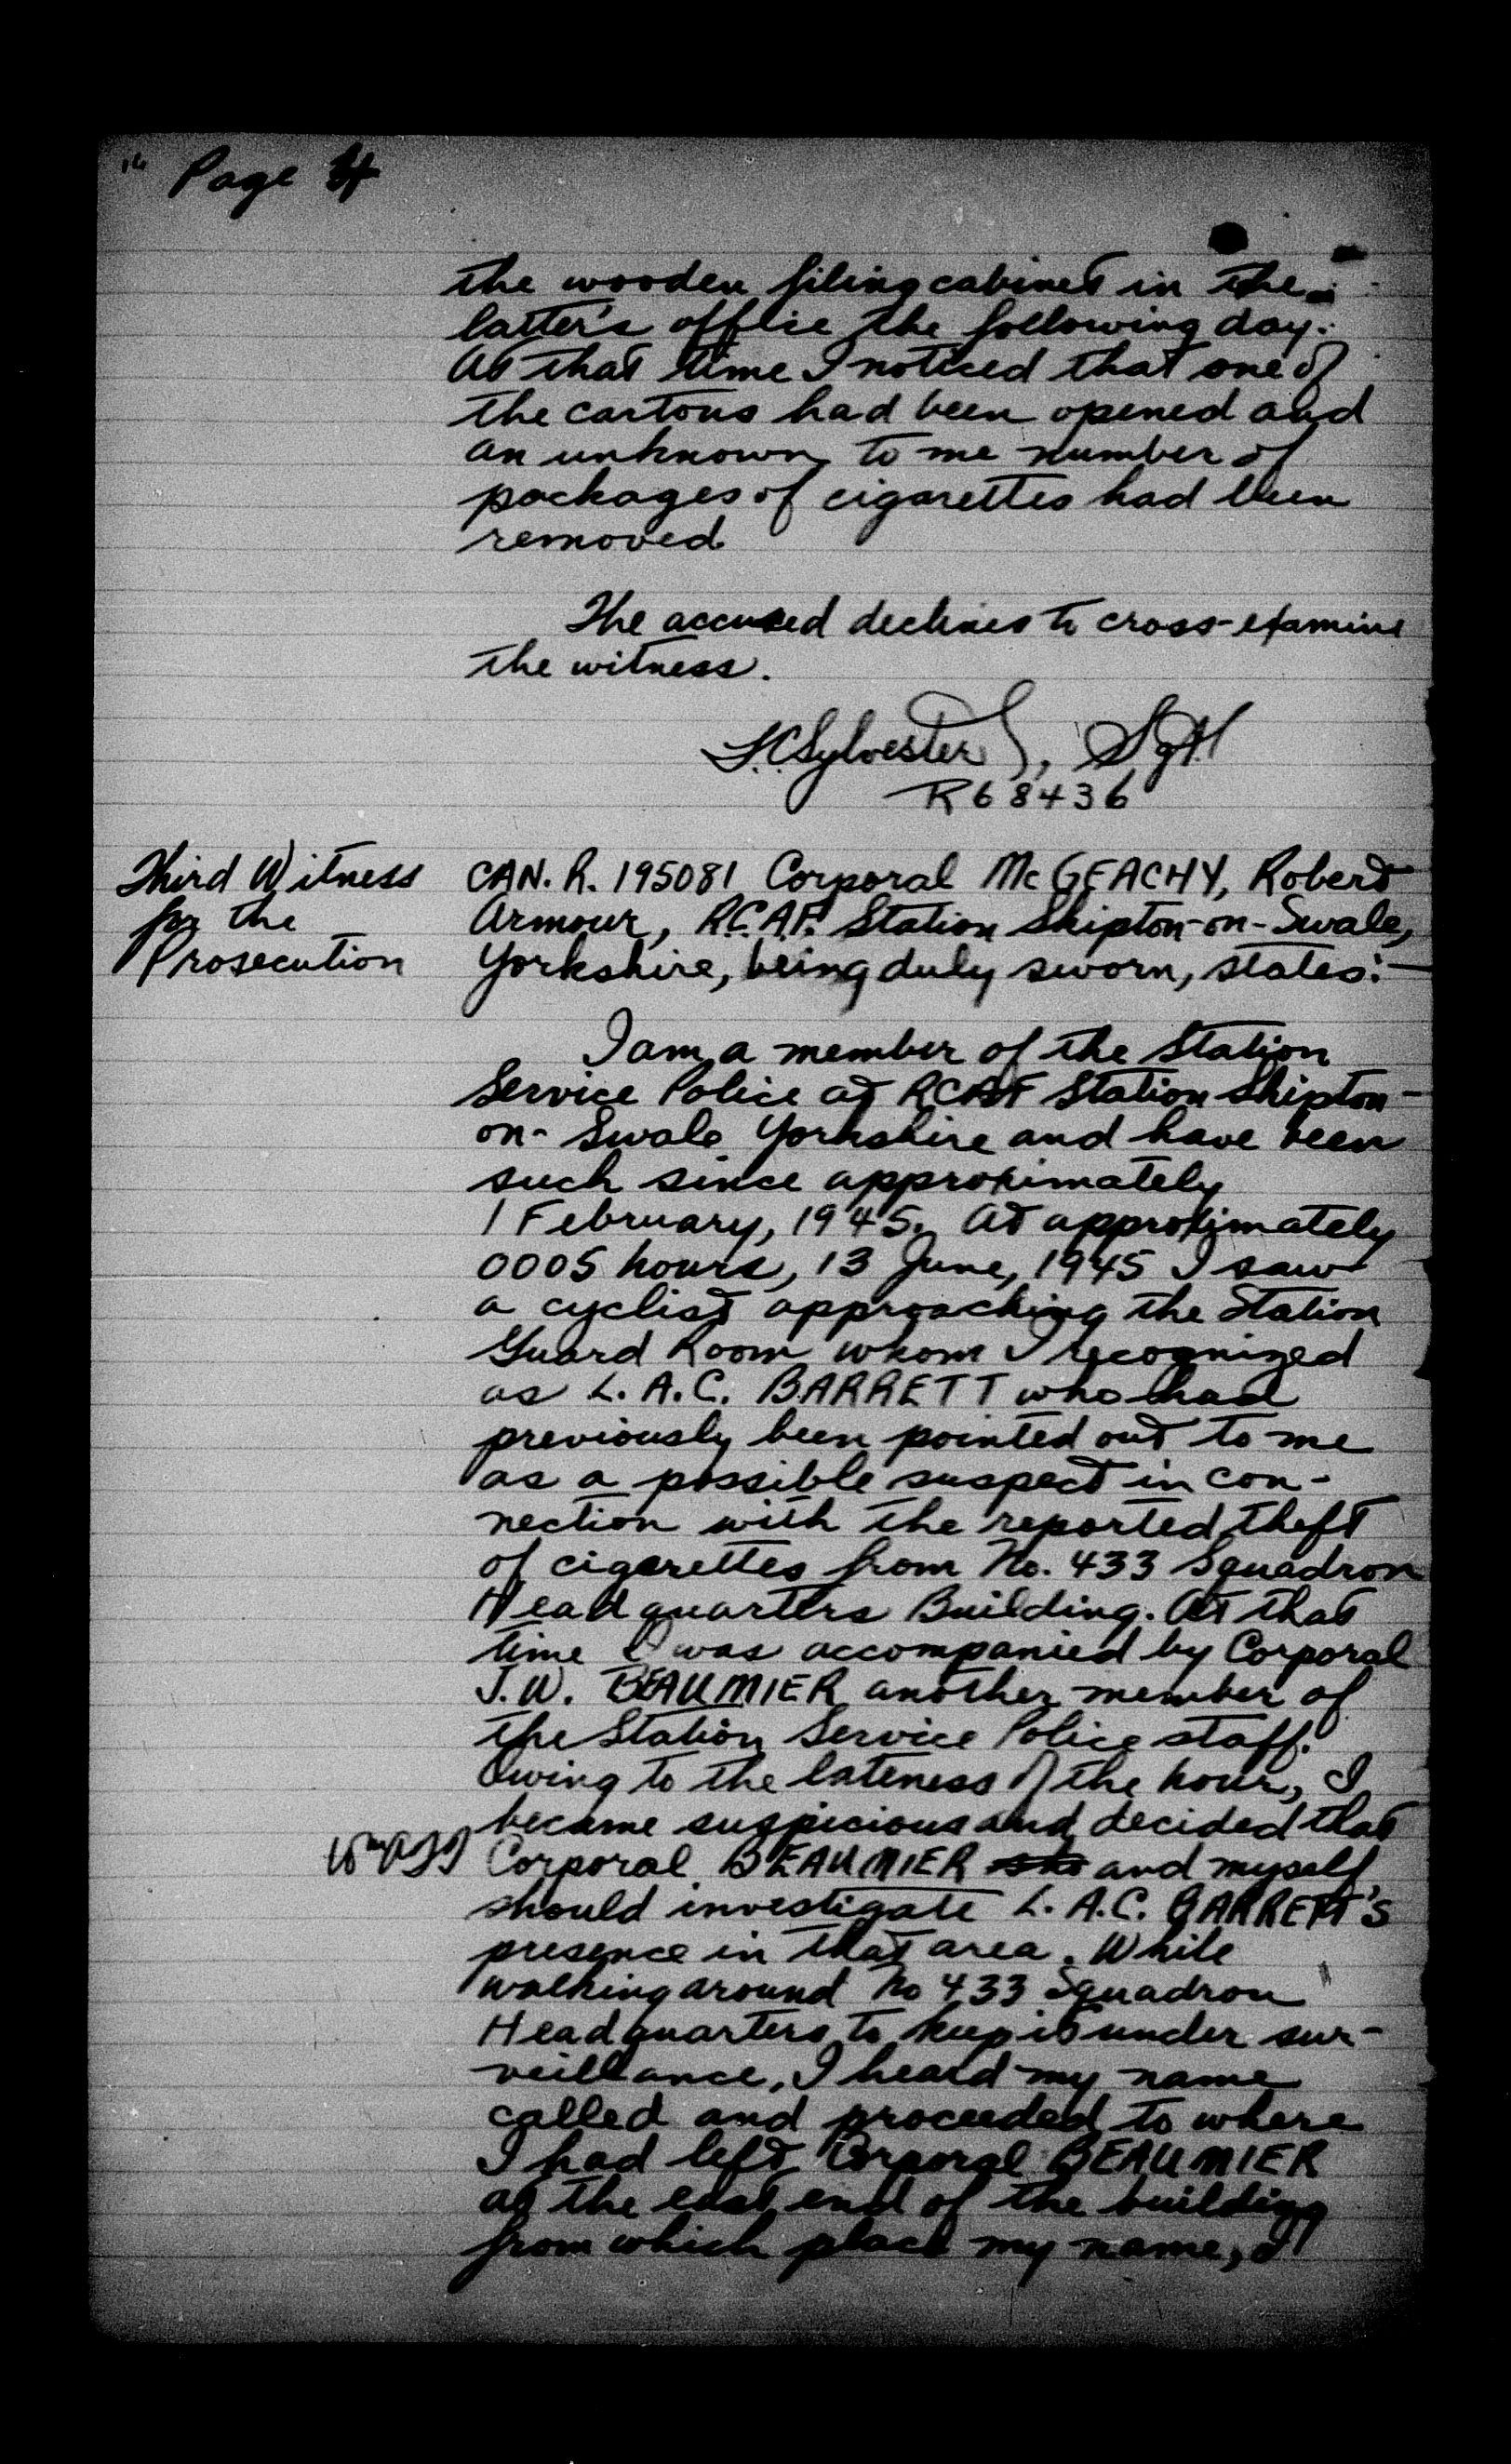 Page 4
the wooden filing cabinet in the
latter's office the following day.
At that time I noticed that one of
the cartons had been opened and
an unknown to me number of
packages of cigarettes had been
removed
The accused declines to cross-examine
the witness.
L.C. Sylvester, Sgt
R68436
Third Witness
for the
Prosecution
CAN. R. 195081 Corporal McGEACHY, Robert
Armour, R.C.A.F. Station Skipton-on-Swale,
Yorkshire, being duly sworn, states:-
I am a member of the Station
Service Police at RCAF Station Skipton-
on-Swale Yorkshire and have been
such since approximately
1 February, 1945. At approximately
0005 hours, 13 June, 1945 I saw
a cyclist approaching the Station
Guard Room whom I recognized
as L.A.C. BARRETT who had
previously been pointed out to me
as a possible suspect in con-
nection with the reported theft
of cigarettes from No. 433 Squadron
Headquarters Building. At that
time I was accompanied by Corporal
J.W. BEAUMIER another member of
the Station Service Police staff.
Owing to the lateness of the hour, I
became suspicious and decided that
Corporal BEAUMIER and myself
should investigate L.A.C. BARRETT'S
presence in that area. While
walking around No 433 Squadron
Headquarters to keep it under sur-
veillance, I heard my name
called and proceeded to where
I had left Corporal BEAUMIER
at the east end of the building
from which place my name, I